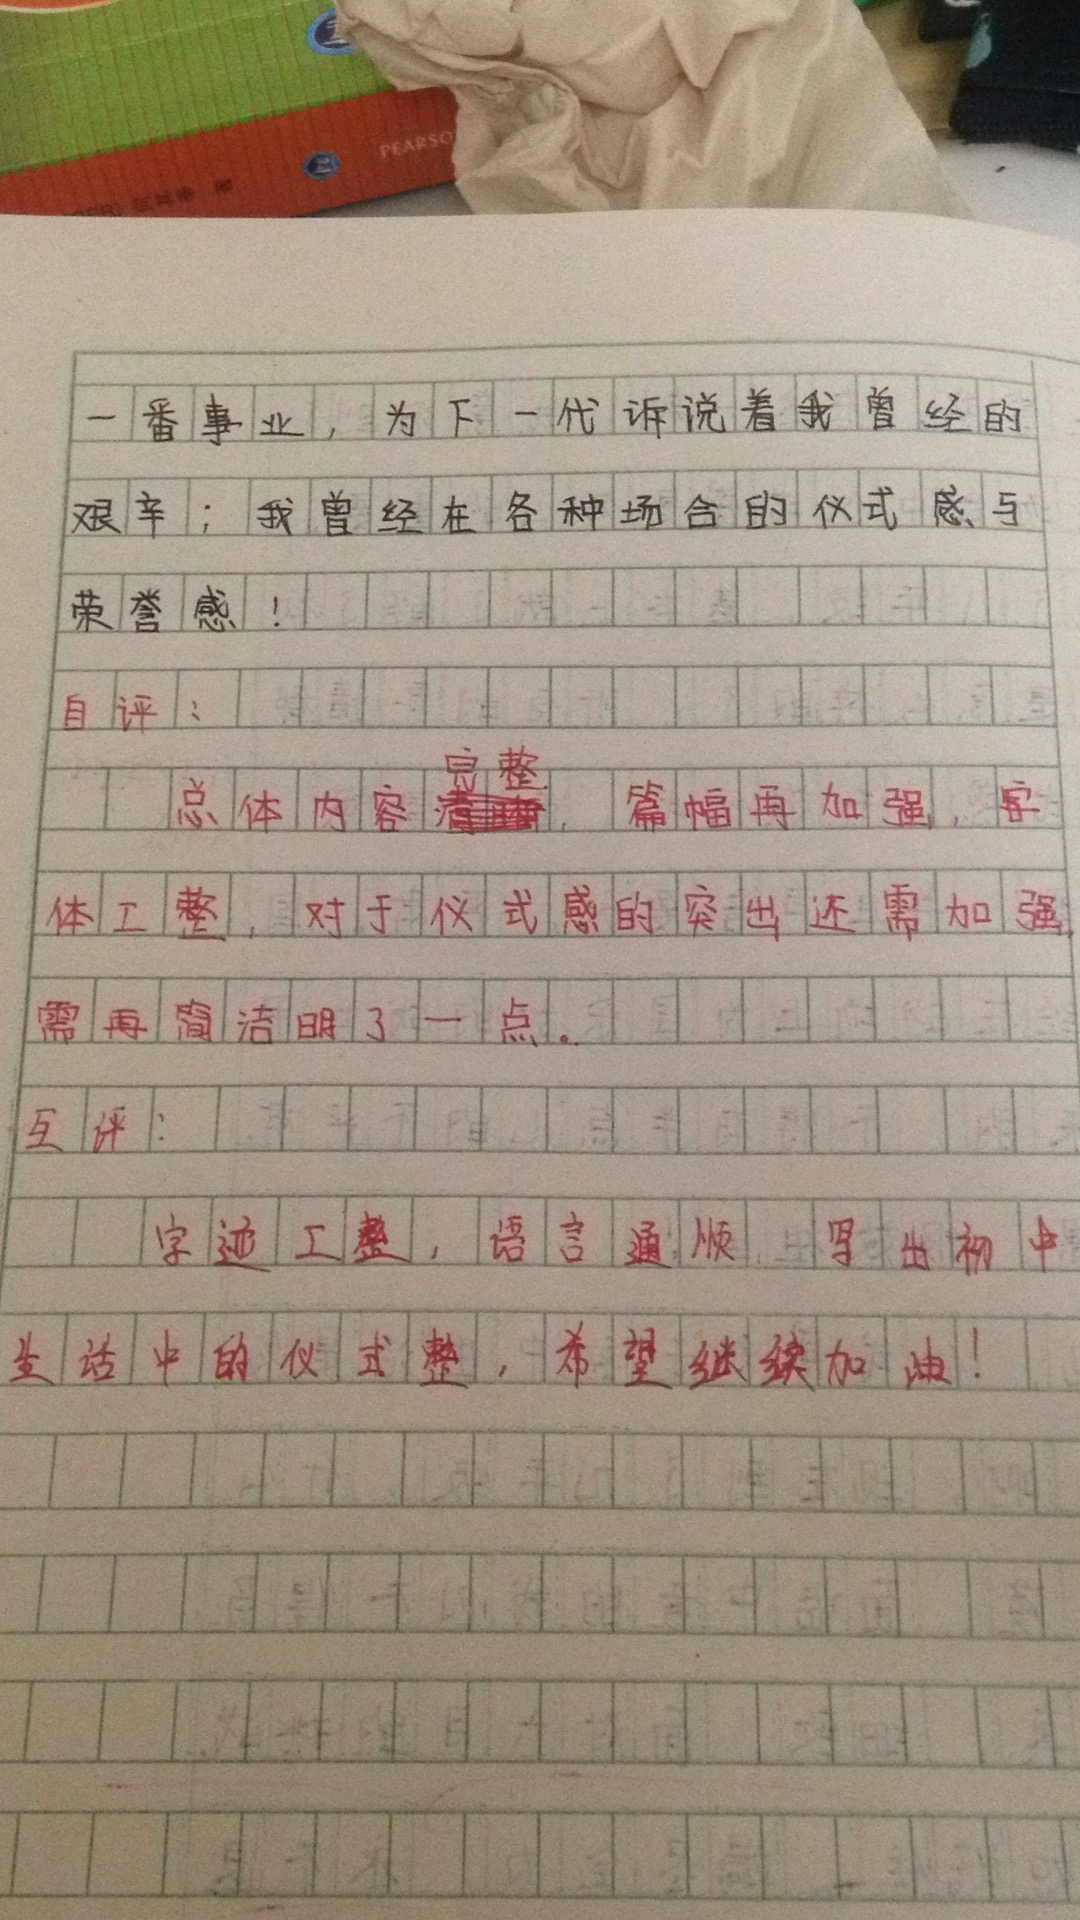 PEARSO
一番事业，为下一代诉说着我曾经的
艰辛；我曾经在各种场合的仪式感与
荣誉感！
自评：
完整
总体内容，篇幅再加强，字
体工整，对于仪式感的突出还需加强，
需再简洁明了一点。
互评：
字迹工整，语言通顺，写出初中
生活中的仪式整，希望继续加油！